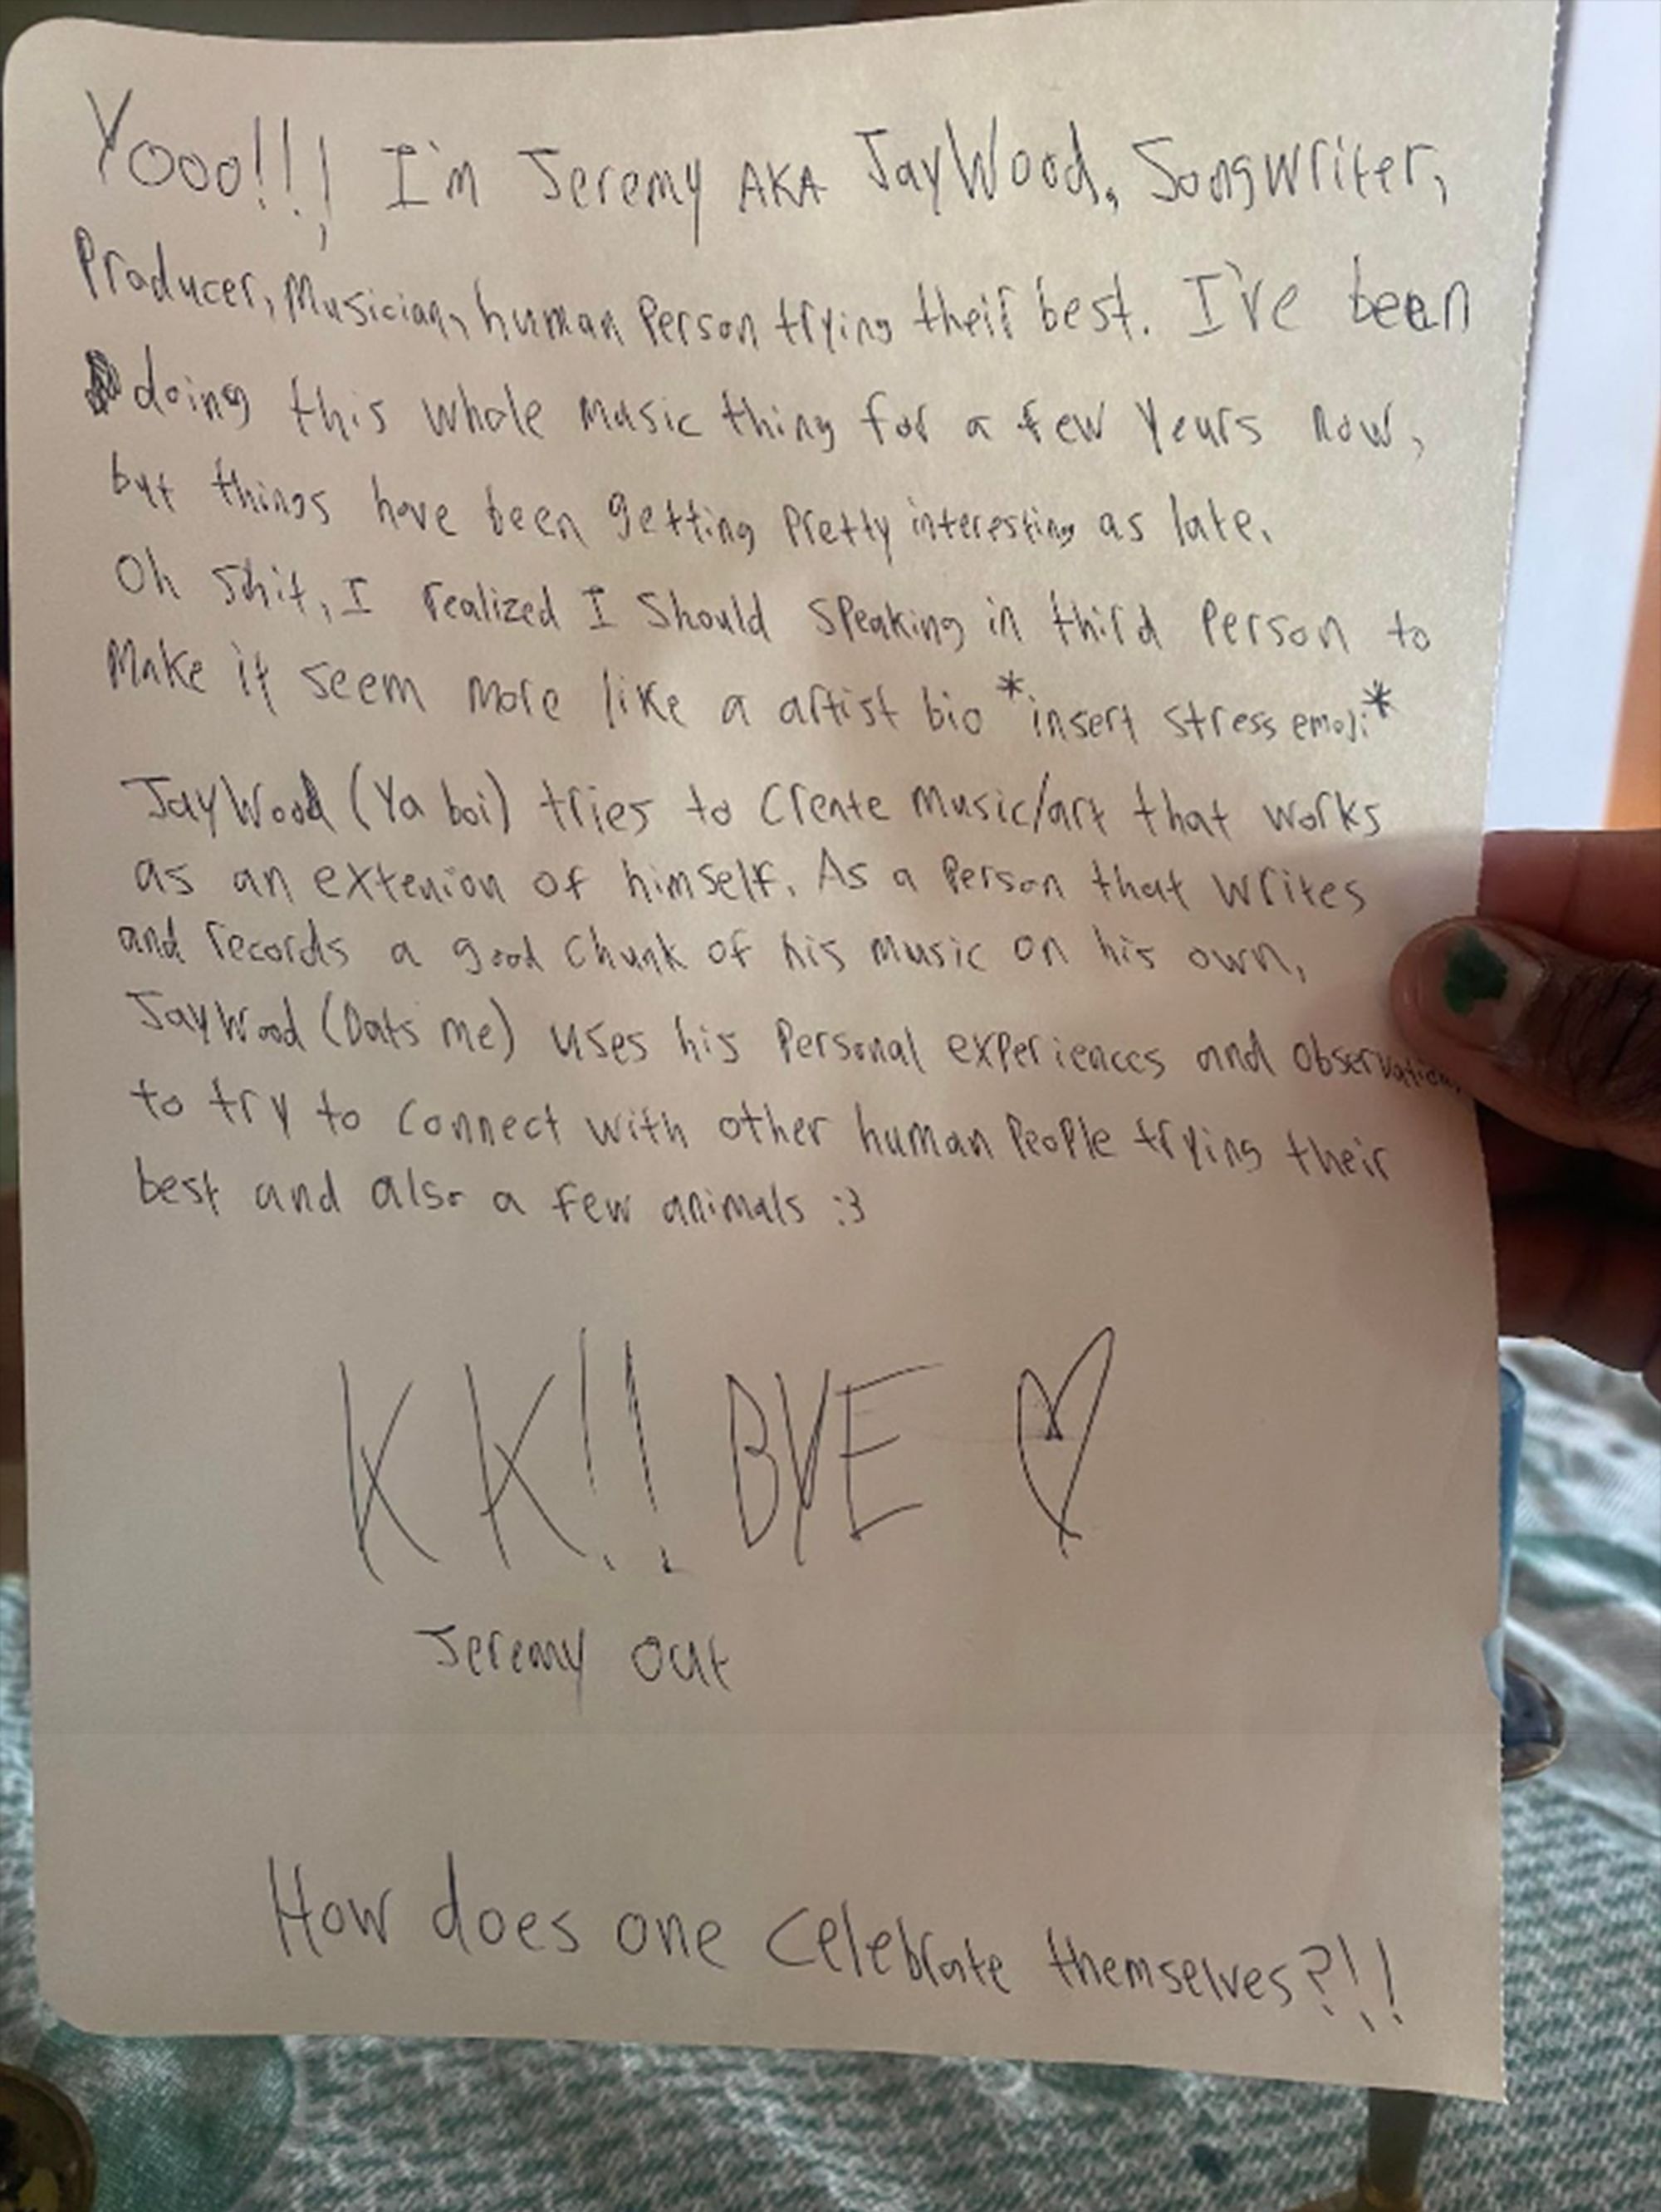 Yooo!!! I'm Jeremy AKA JayWood, Songwriter,
Producer, Musician, human Person trying their best. I've been
doing this whole music thing for a few years now,
but things have been getting pretty interesting as late.
Oh shit, I realized I should speaking in third Person to
Make it seem more like a artist bio *insert stress emoji*
JayWood (Ya boi) tries to create music/art that works
as an extenion of himself. As a Person that writes
and records a good chunk of his music on his own,
JayWood (Dats me) uses his Personal experiences and observations
to try to connect with other human People trying their
best and also a few animals :3
KK!! BYE ♡
Jeremy out
How does one celebrate themselves?!!